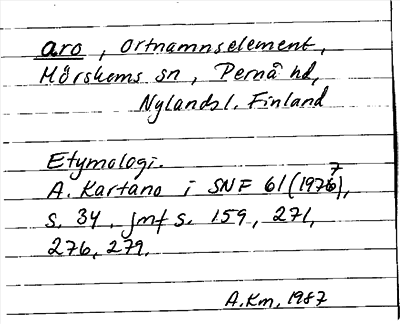 aro, Ortnamnselement,
Mörskoms sn, Pernå hd,
Nylandsl. Finland
Etymologi.
A. Kartano i SNF 61 (1977),
s. 34. jmf s. 159, 271,
276, 279.
A.Km, 1987